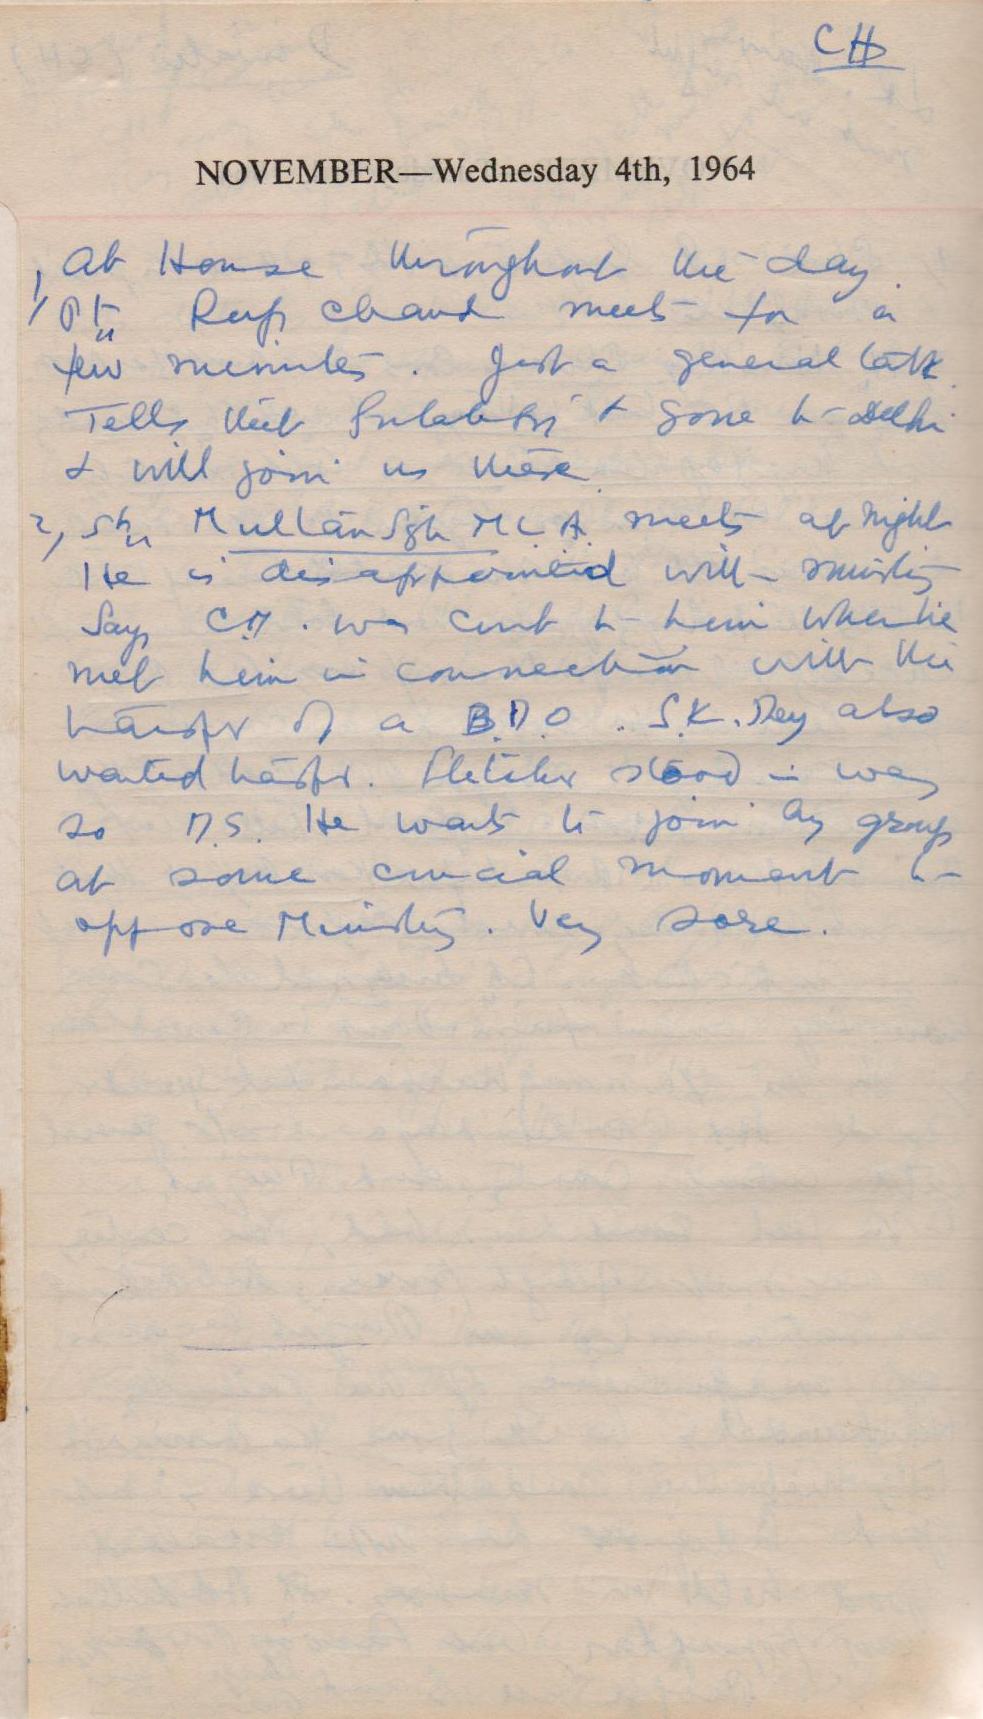 CH
NOVEMBER—Wednesday 4th, 1964
1, At House throughout the day.
Pt. Rup Chand meets for a
few minutes. Just a general talk.
Tells that + gone to Delhi
& will join us there.
2, Sh. Multan Sgh M.L.A. meets at night
He is disappointed with ministry
Says C.M. was curt to him when he
met him in connection with the
transfr of a B.D.O. S.K. Dey also
wanted transfr. Fletcher stood in way
so D.S. He wants to join any group
at some crucial moment to
oppose Ministry. Very sore.